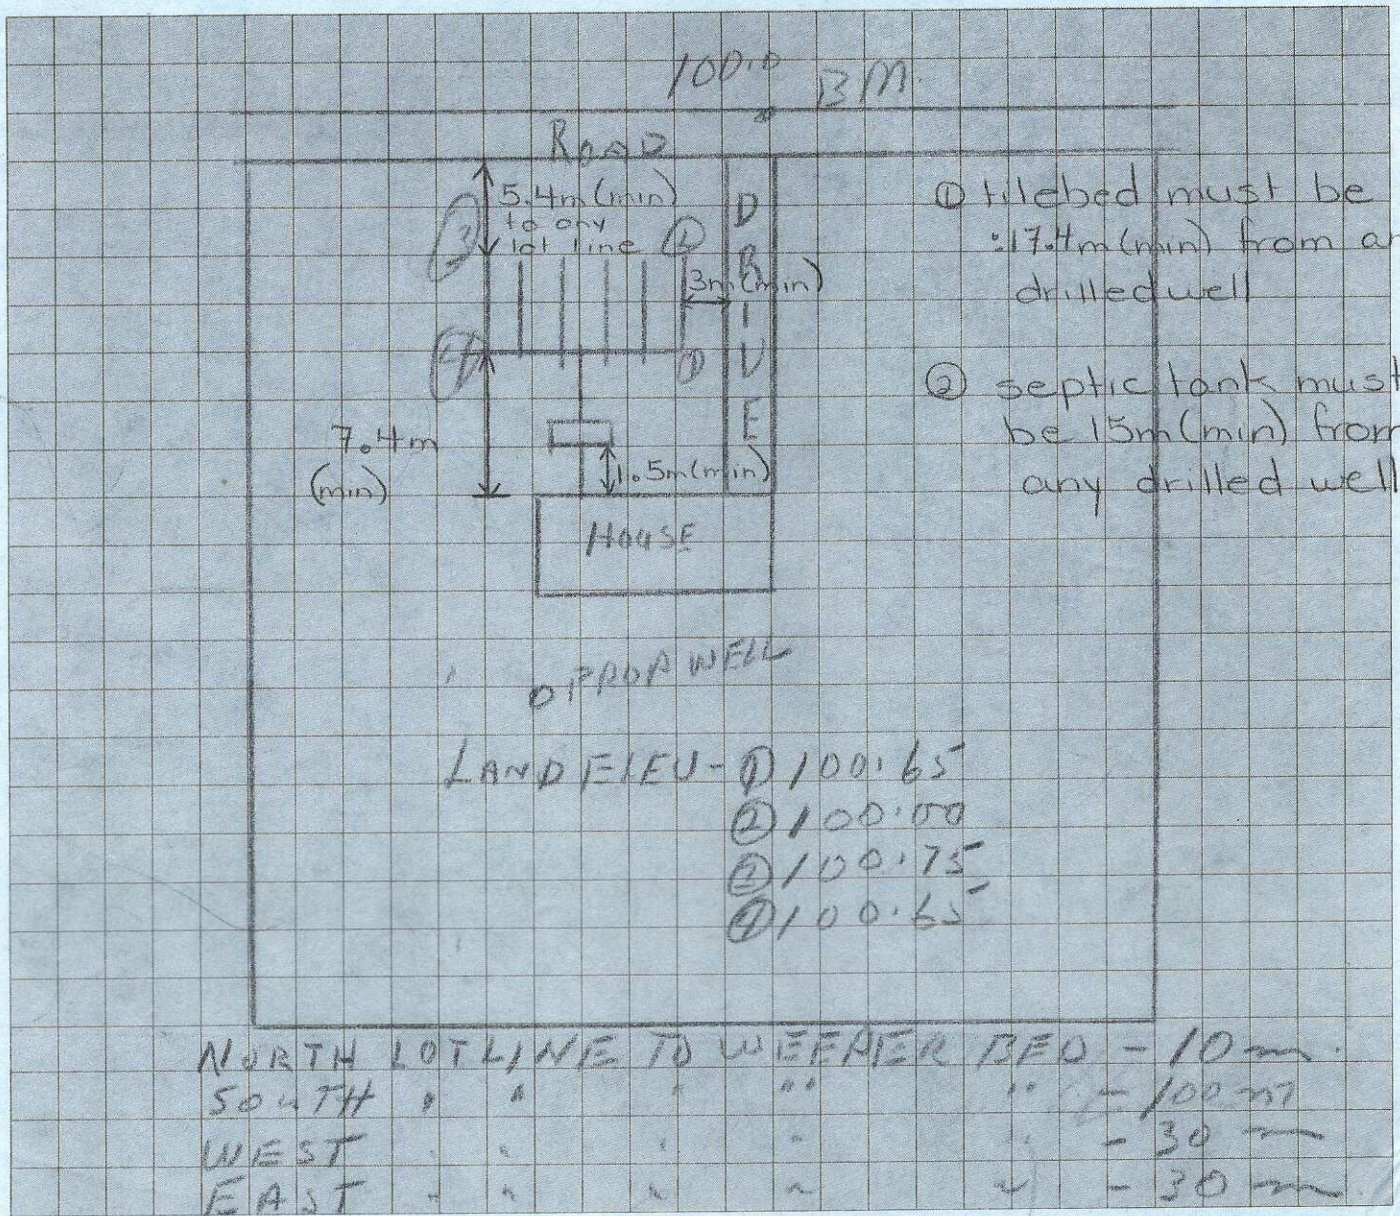 100.0 BM.
ROAD
5.4m (min)
to any
lot line
3
2
3m (min)
DRIVE
4
1
7.4m
(min)
1.5m (min)
HOUSE
① tilebed must be
17.4m (min) from an
drilled well
② septic tank must
be 15m (min) from
any drilled well
PROP WELL
LAND ELEV - ① 100.65
② 100.00
③ 100.75
④ 100.65
NORTH LOT LINE TO WEEPER BED - 10 m.
SOUTH " " " " " - 100 m
WEST " " " " " - 30 m
EAST " " " " " - 30 m